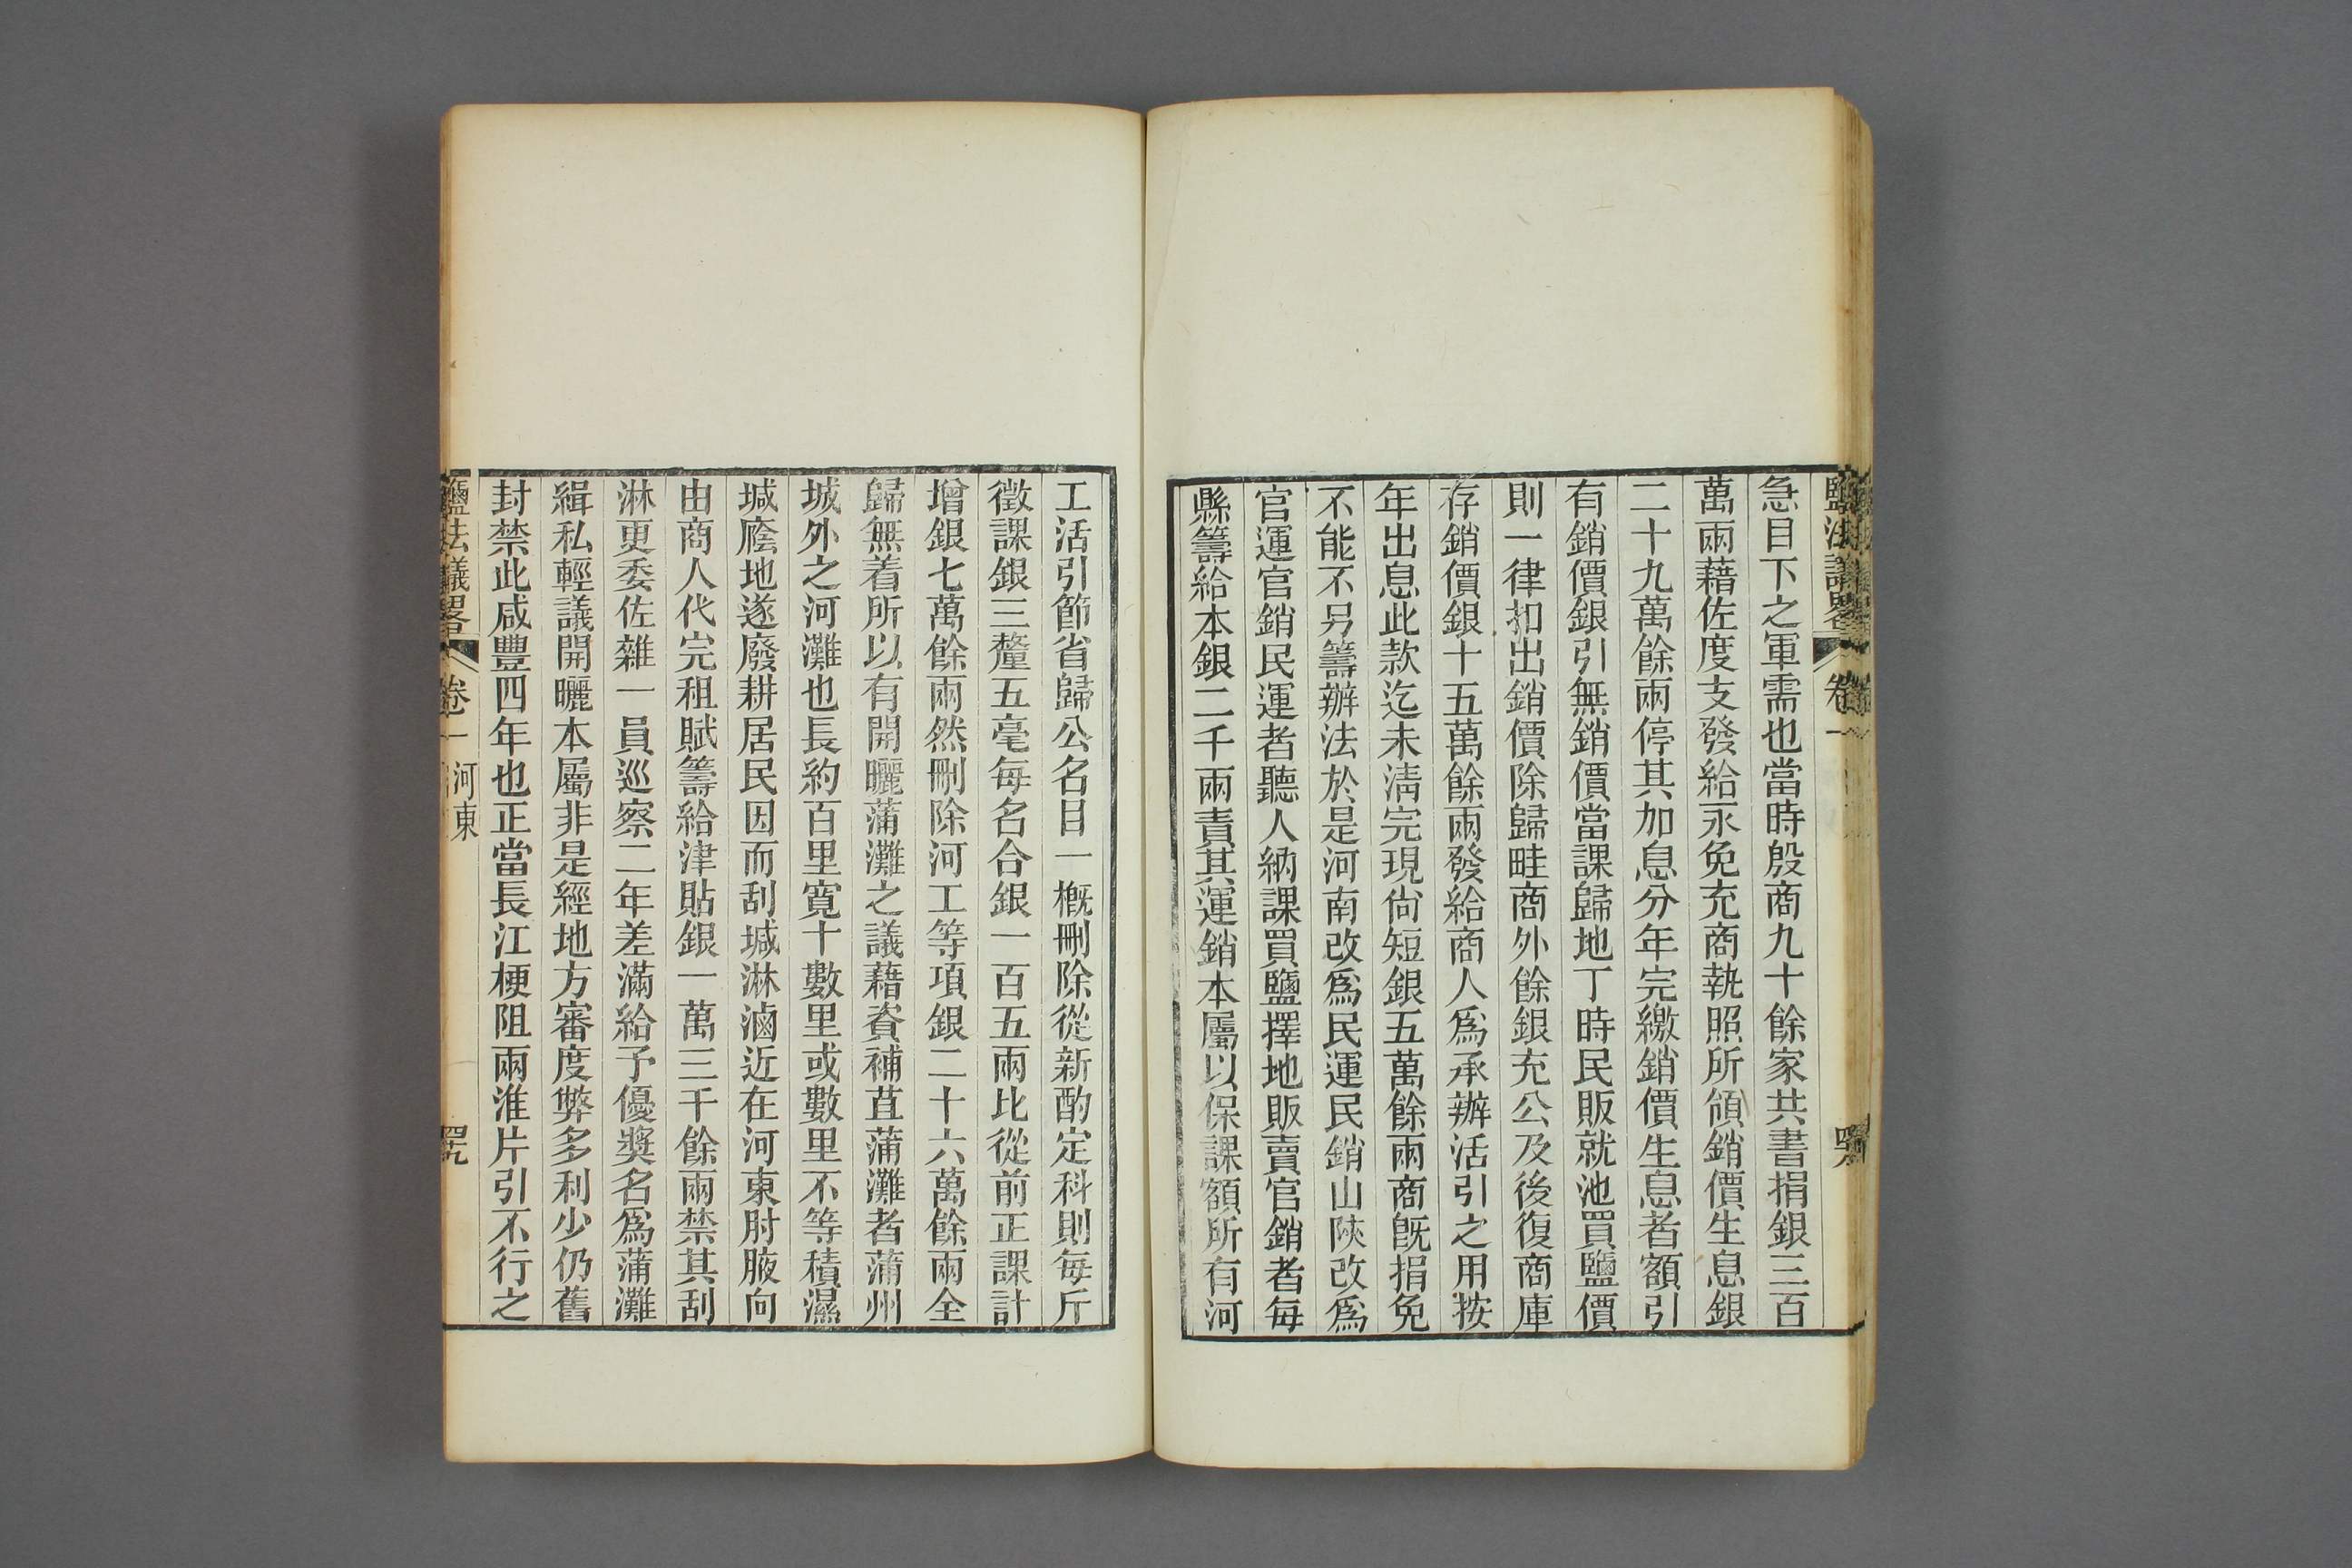 鹽法議畧
卷一
急目下之軍需也當時殷商九十餘家共書捐銀三百
萬兩藉佐度支發給永免充商執照所領銷價生息銀
二十九萬餘兩停其加息分年完繳銷價生息者額引
有銷價銀引無銷價當課歸地丁時民販就池買鹽價
則一律扣出銷價除歸畦商外餘銀充公及後復商庫
存銷價銀十五萬餘兩發給商人爲承辦活引之用按
年出息此款迄未淸完現尙短銀五萬餘兩商旣捐免
不能不另籌辦法於是河南改爲民運民銷山陝改爲
官運官銷民運者聽人納課買鹽擇地販賣官銷者每
縣籌給本銀二千兩責其運銷本屬以保課額所有河
工活引節省歸公名目一槪刪除從新酌定科則每斤
徵課銀三釐五毫每名合銀一百五兩比從前正課計
增銀七萬餘兩然刪除河工等項銀二十六萬餘兩全
歸無着所以有開曬蒲灘之議藉資補苴蒲灘者蒲州
城外之河灘也長約百里寬十數里或數里不等積濕
堿廕地遂廢耕居民因而刮堿淋滷近在河東肘腋向
由商人代完租賦籌給津貼銀一萬三千餘兩禁其刮
淋更委佐雜一員巡察二年差滿給予優獎名爲蒲灘
緝私輕議開曬本屬非是經地方審度弊多利少仍舊
封禁此咸豐四年也正當長江梗阻兩淮片引不行之
鹽法議畧
卷一
河東
四九